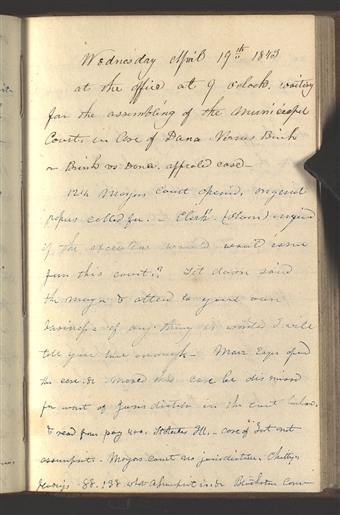 Wednesday April 19th 1843
at the office at 9 o'clock. waiting
for the assembling of the Municipal
Court, in Case of Dana Versus Brink
or Brink vs Dana. appeald case—
Mayors Court opened,
papers called for. — Clerk (Sloan)
if the executions would issue
from this court? Set down said
the mayor & attend to your own
business if any thing is wanted I will
tell you time enough— Marr Esqr opend
the case. & moved the case be dismissed
for want of Jurisdiction in the court below.
& read from pag 402. Statutes Ill. — case of
assumpsit. Mayors court no jurisdiction. Chittys
88. 138 what Assumpsit is. &c Blackston Com-